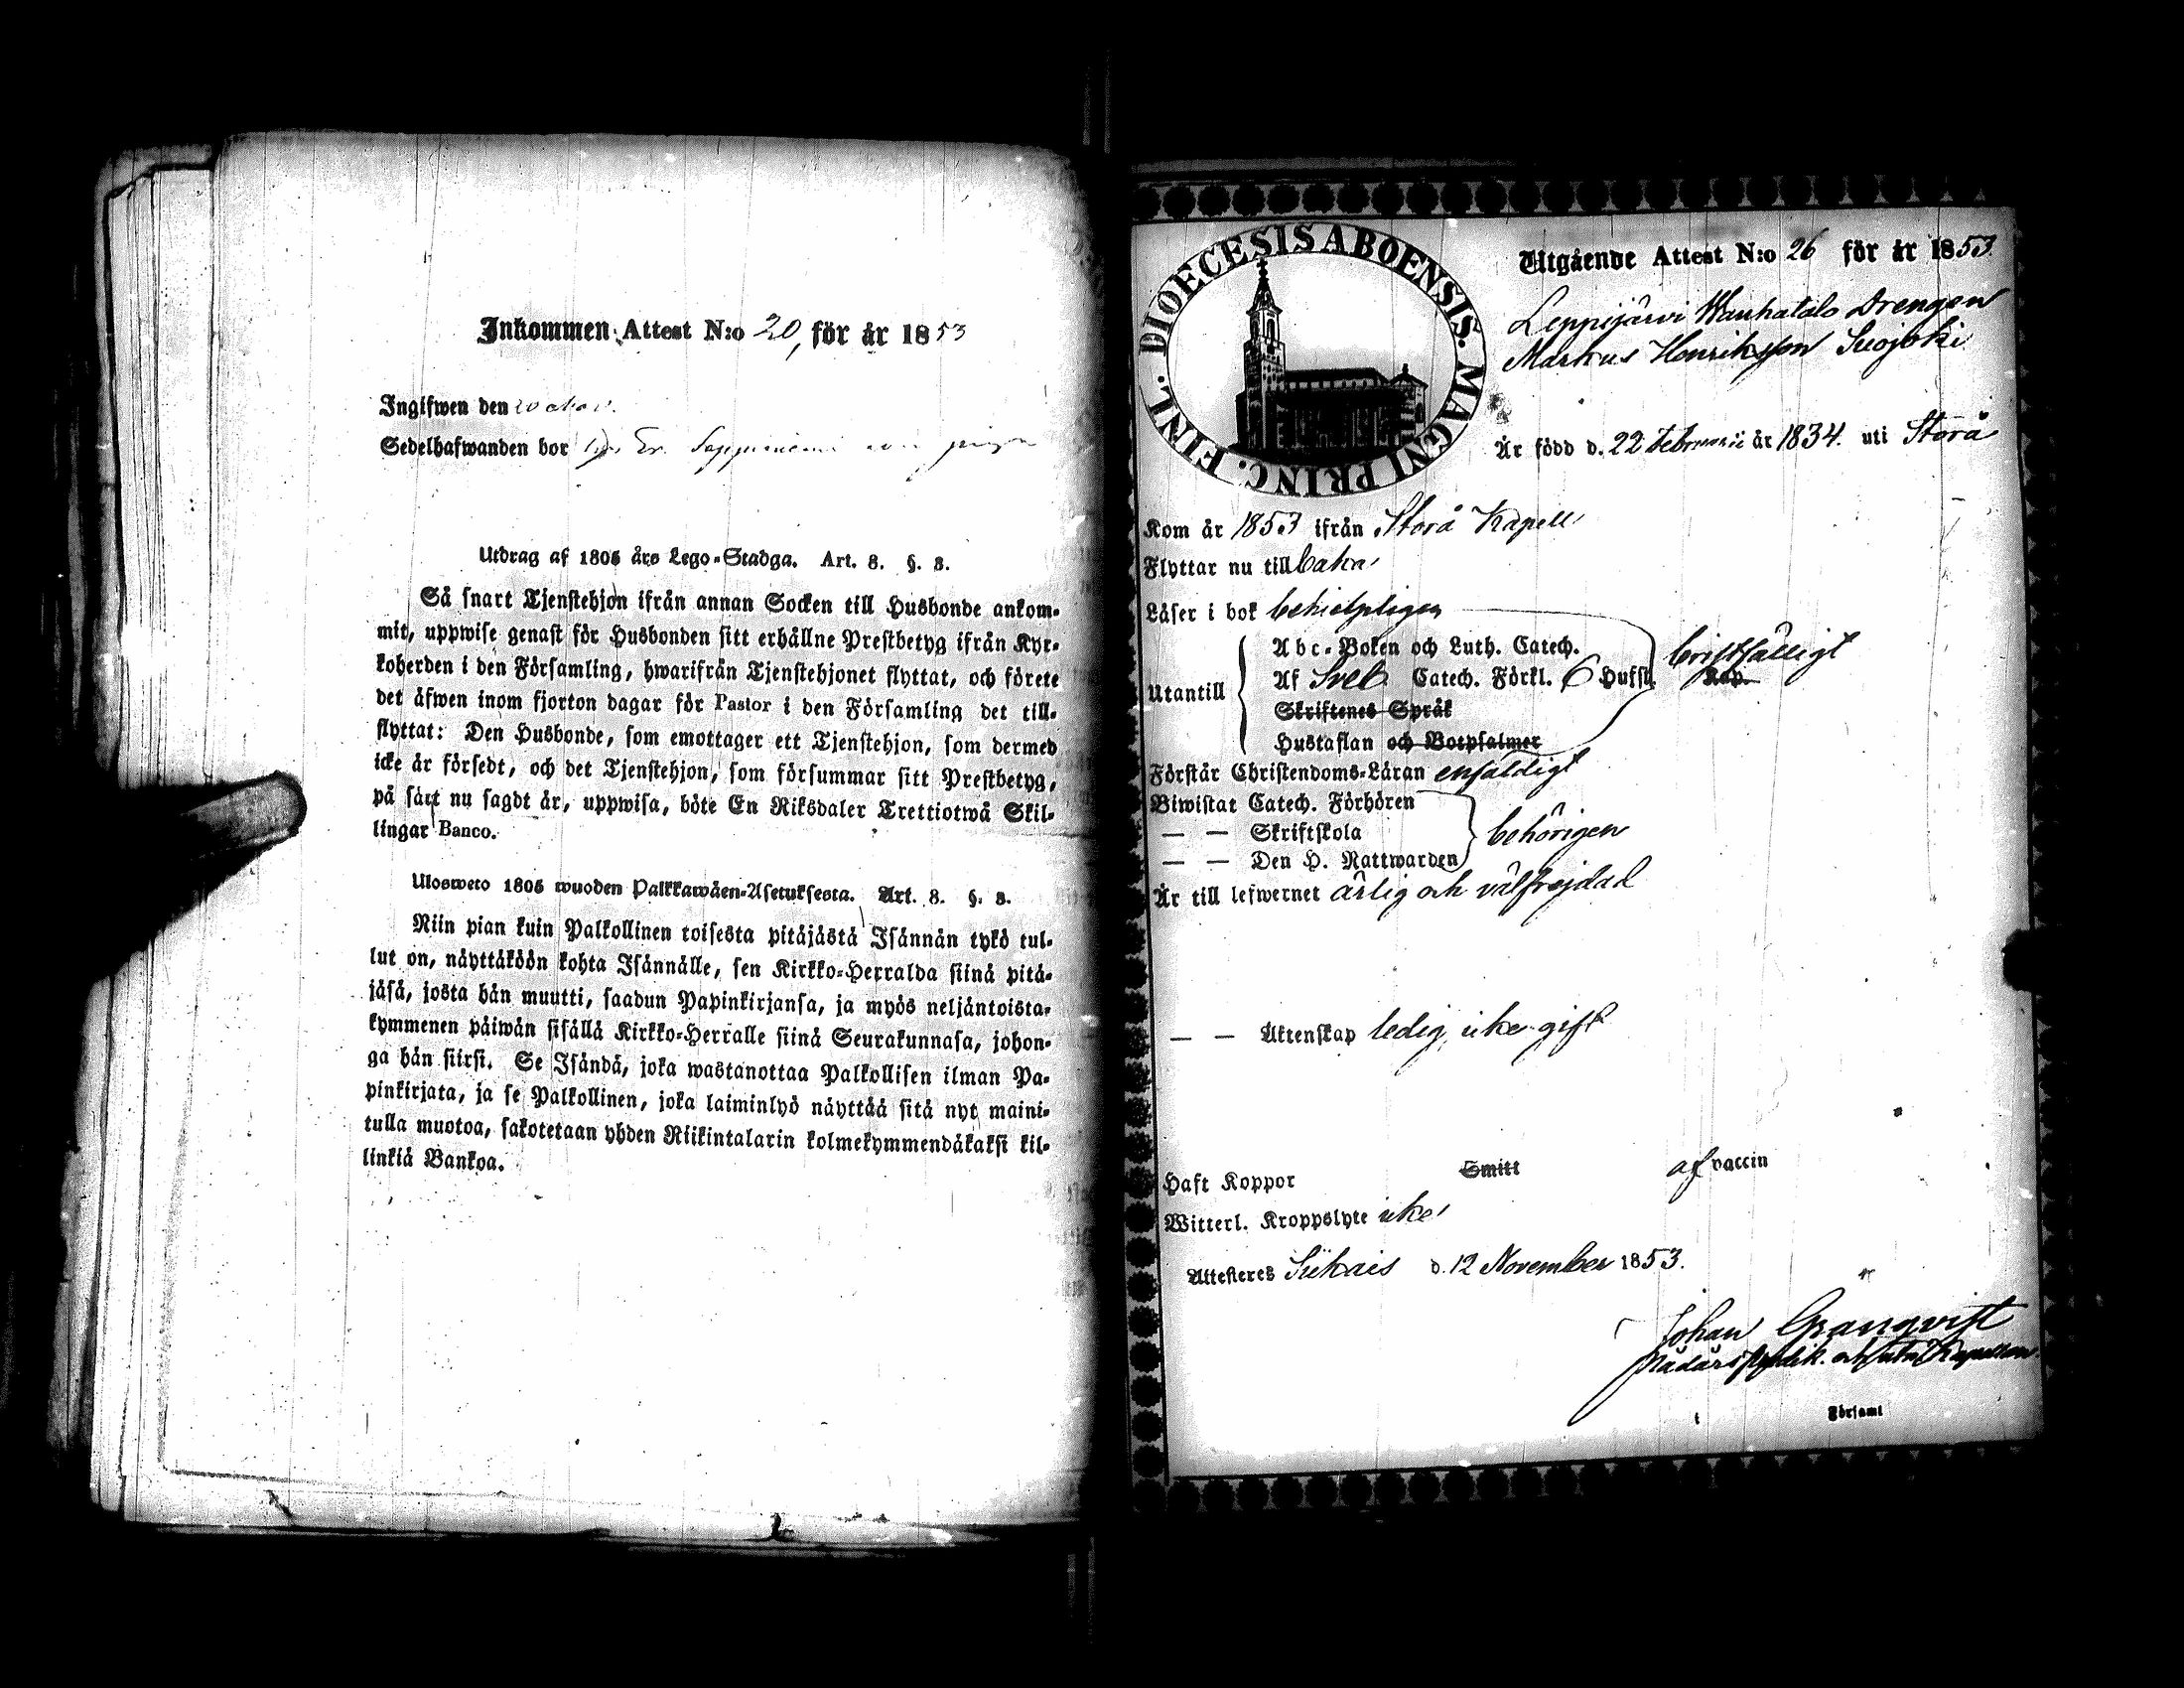 Inkommen Attest N:o 20, för år 1853
Ingifwen den 20 Nov.
Sedelhafwanden bor hos
Utdrag af 1805 års Lego-Stadga. Art. 8. §. 3.
Så snart Tjenstehjon ifrån annan Socken till Husbonde ankom-
mit, uppwise genast för Husbonden sitt erhållne Prestbetyg ifrån Kyr-
koherden i den Församling, hwarifrån Tjenstehjonet flyttat, och förete
det äfwen inom fjorton dagar för Pastor i den Församling det till-
flyttat: Den Husbonde, som emottager ett Tjenstehjon, som dermed
icke är försedt, och det Tjenstehjon, som försummar sitt Prestbetyg,
på sätt nu sagdt är, uppwisa, böte En Riksdaler Trettiotwå Skil-
lingar Banco.
Ulosweto 1805 wuoden Palkkawäen-Asetuksesta. Art. 8. §. 3.
Niin pian kuin Palkollinen toisesta pitäjästä Isännän tykö tul-
lut on, näyttäköön kohta Isännälle, sen Kirkko-Herralda siinä pitä-
jäsä, josta hän muutti, saadun Papinkirjansa, ja myös neljäntoista-
kymmenen päiwän sisällä Kirkko-Herralle siinä Seurakunnasa, johon-
ga hän siirsi. Se Isändä, joka wastanottaa Palkollisen ilman Pa-
pinkirjata, ja se Palkollinen, joka laiminlyö näyttää sitä nyt maini-
tulla muotoa, sakotetaan yhden Riikintalarin kolmekymmendäkaksi kil-
linkiä Bankoa.
DIOECESIS ABOENSIS. MAGNI PRINC. FINL.
Utgående Attest N:o 26 för år 1853.
Leppijärvi Wanhatalo Drengen
Markus Henriksson Suojoki
Är född d. 22 Februarii år 1834. uti Storå
Kom år 1853 ifrån Storå Kapell
Flyttar nu tillbaka
Läser i bok behielpligen
Utantill
Abc-Boken och Luth. Catech.
Af Sveb Catech. Förkl. 6 Hufst. Kap.
bristfälligt
Skriftenes Språk
Hustaflan och Botpsalmer
Förstår Christendoms-Läran enfaldigt
Biwistat Catech. Förhören
— — Skriftskola
behörigen
— — Den H. Nattwarden
Är till lefwernet ärlig och välfrejdad
— — Äktenskap ledig, icke gift
Haft Koppor Smitt af vaccin
Witterl. Kroppslyte icke
Attesteres Siikais d. 12 November 1853.
Johan Granqvist
i Församl